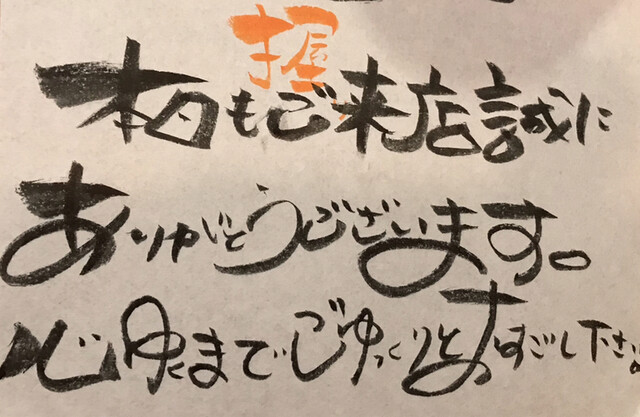 握
本日もご来店誠に
ありがとうございます。
心ゆくまでごゆっくりと
おすごし下さい。